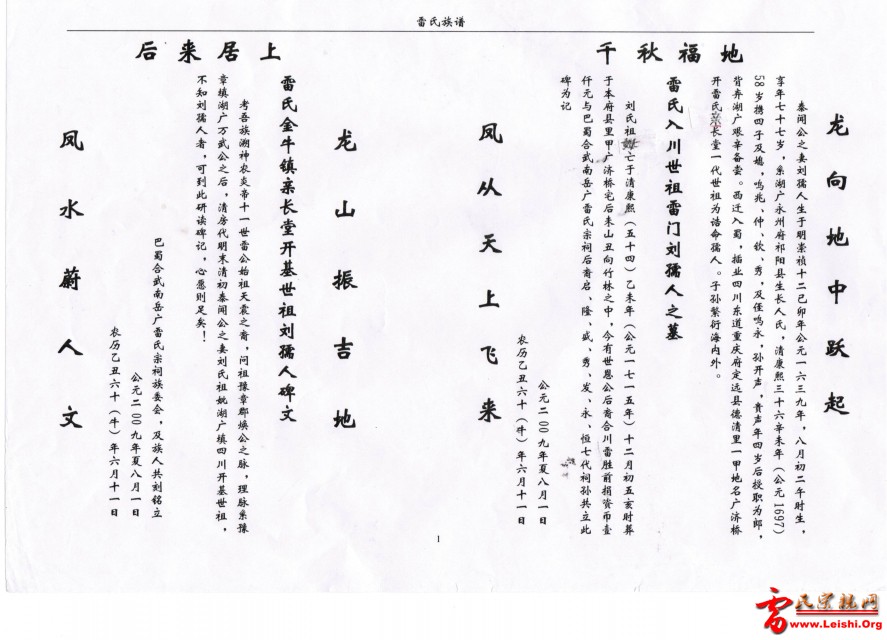 雷氏族谱
千秋福地
龙向地中跃起
秦闻公之妻刘孺人生于明崇祯十二己卯年公元一六三九年，八月初二午时生，
享年七十七岁，系湖广永州府祁阳县生长人氏，清康熙三十六辛未年（公元1697）
58岁携四子及媳，鸣兆、仲、钦、秀，及侄鸣永，孙开声，贵声年四岁后授职为郎，
背弃湖广艰辛备尝。西迁入蜀，插业四川东道重庆府定远县德清里一甲地名广济桥
开雷氏亲长堂一代世祖为诰命孺人。子孙繁衍海内外。
雷氏入川世祖雷门刘孺人之墓
刘氏祖妣亡于清康熙（五十四）乙未年（公元一七一五年）十二月初五亥时葬
于本府县里甲广济桥宅后未山丑向竹林之中，今有世恩公后裔合川雷胜前捐资币壹
仟元与巴蜀合武南岳广雷氏宗祠后裔启、隆、盛、秀、发、永、恒七代祠孙共立此
碑为记
公元二00九年夏八月一日
农历乙丑六十（牛）年六月十一日
凤从天上飞来
后来居上
龙山振吉地
雷氏金牛镇亲长堂开基世祖刘孺人碑文
考吾族溯神农炎帝十一世雷公始祖天震之裔，问祖豫章郡焕公之脉，理脉系豫
章填湖广万武公之后，清房代明末清初秦闻公之妻刘氏祖妣湖广填四川开基世祖，
不知刘孺人者，可到此研读碑记，心愿则足矣！
巴蜀合武南岳广雷氏宗祠族委会，及族人共刘铭立
公元二00九年夏八月一日
农历乙丑六十（牛）年六月十一日
凤水蔚人文
1
雷氏宗亲网
www.Leishi.Org